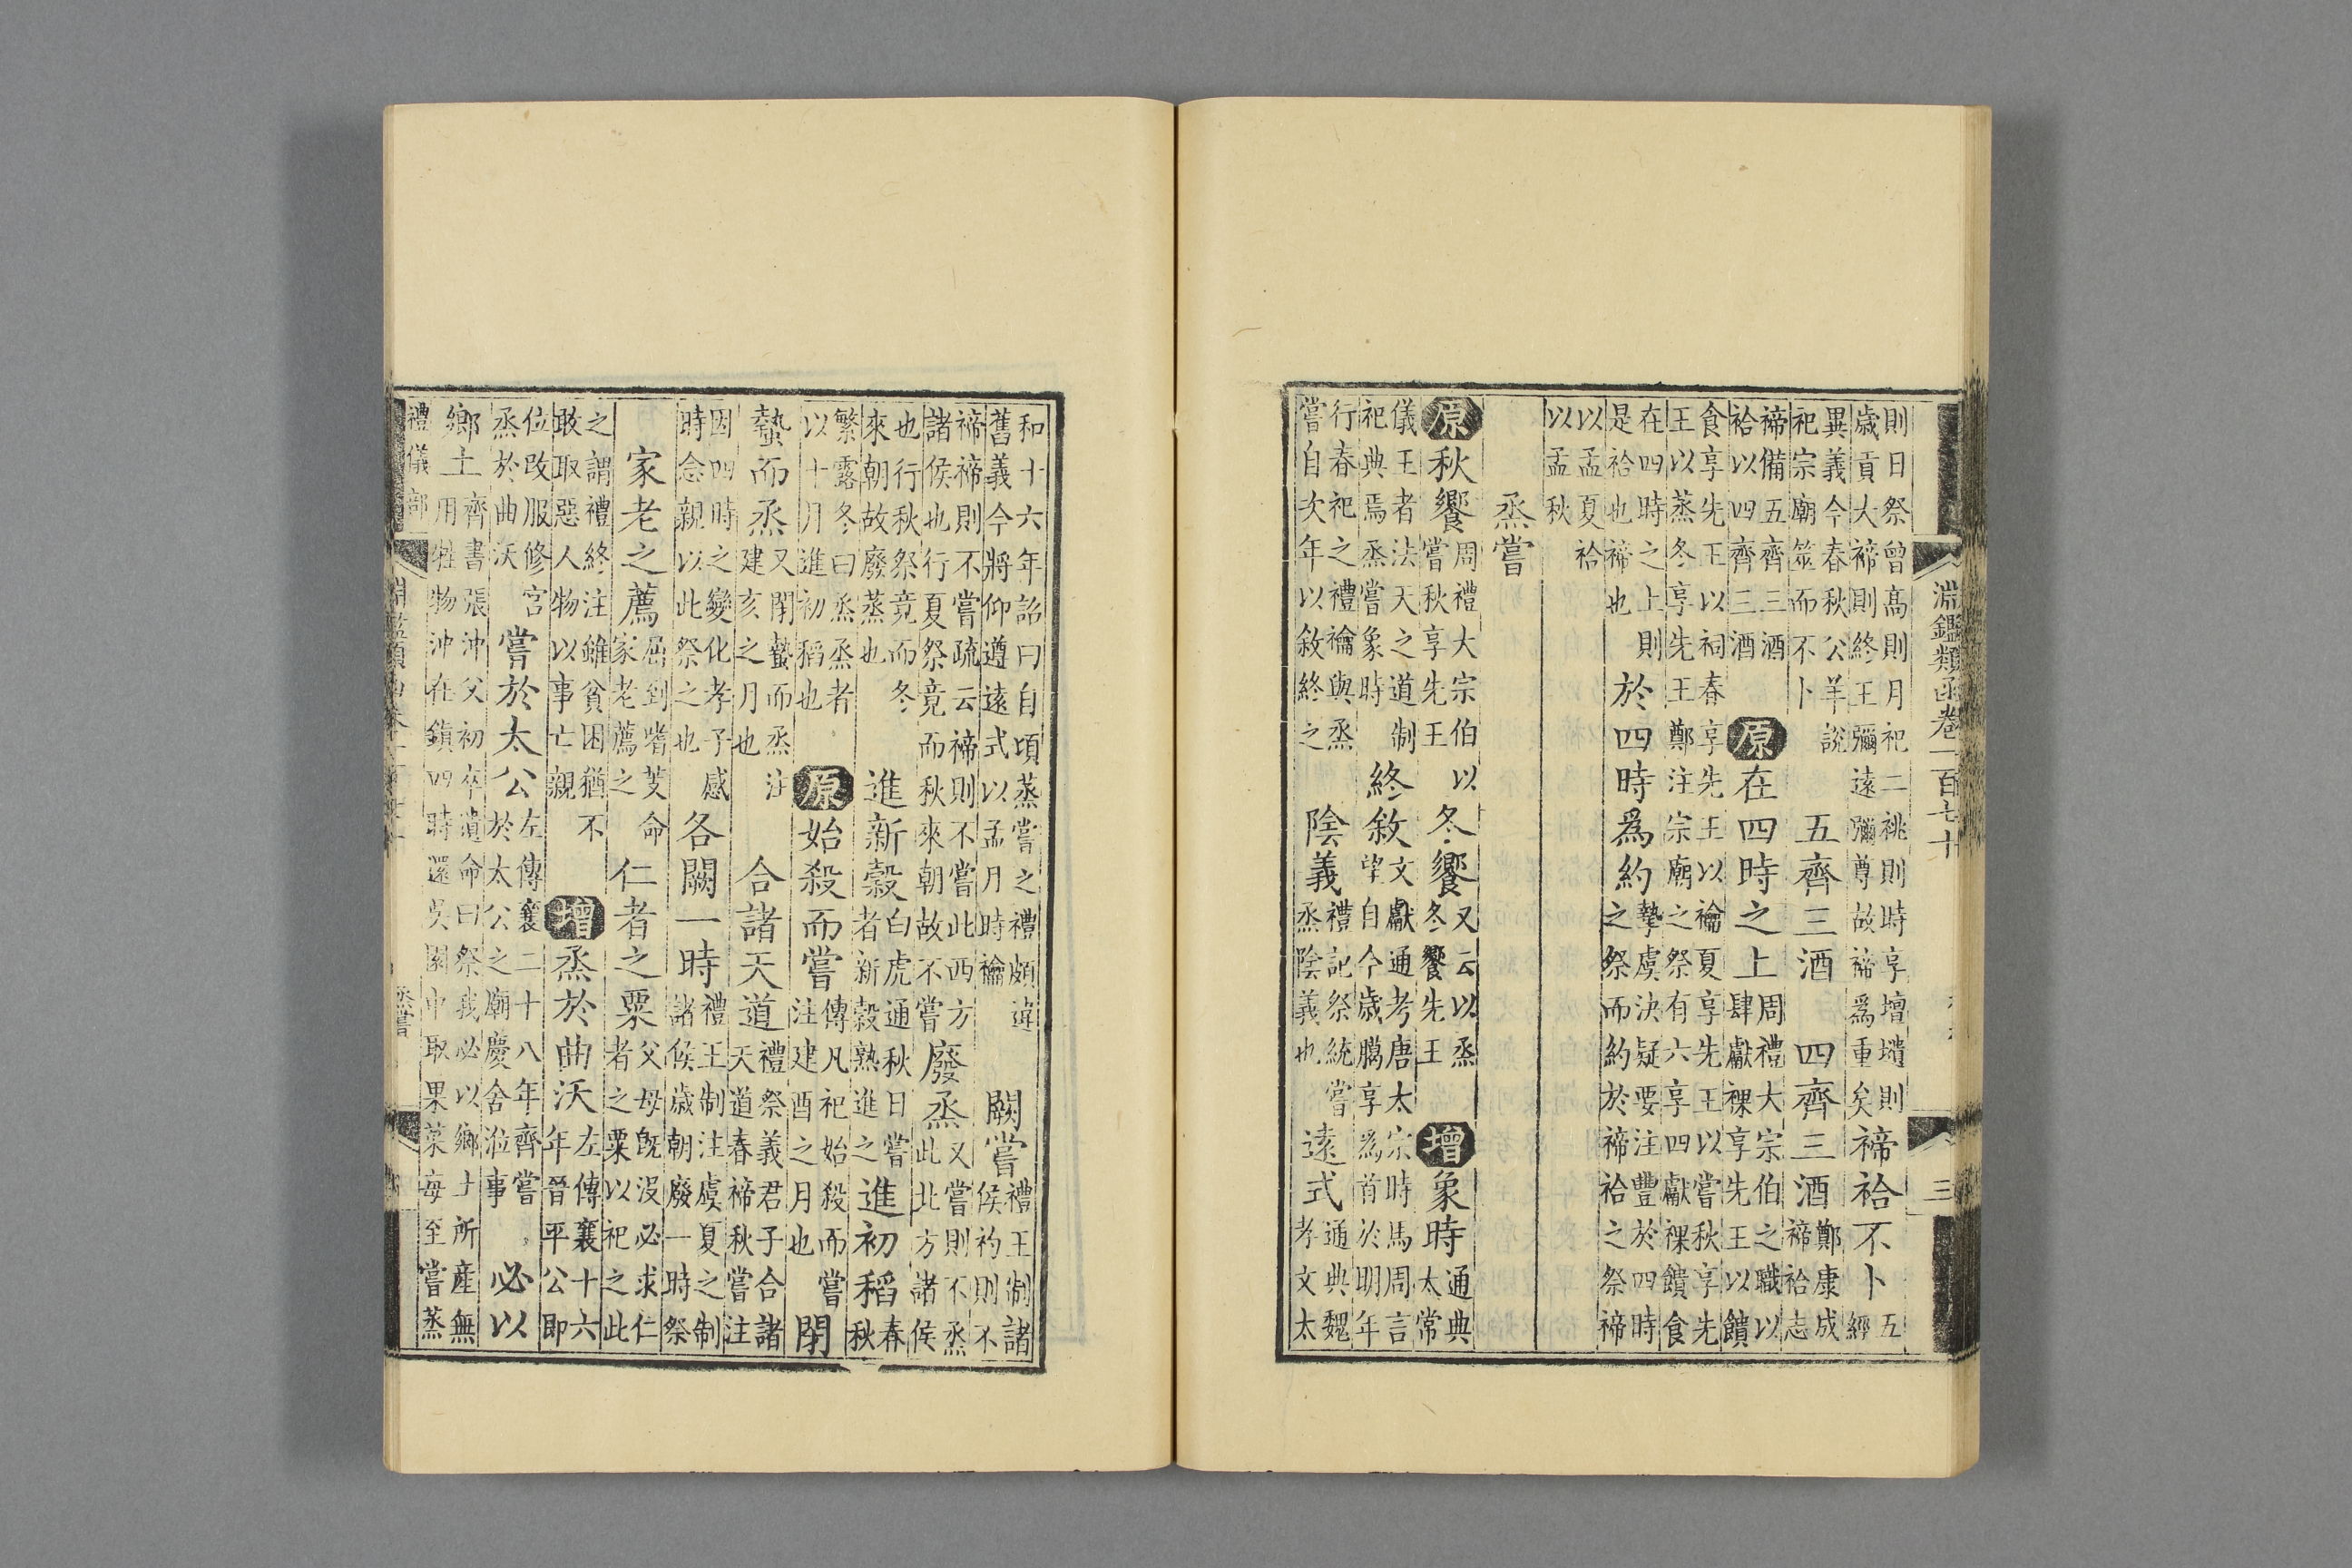 淵鑑類函卷一百七十
三
則日祭曾高則月祀二祧則時享壇墠則
歲貢大禘則終王彌遠彌尊故禘爲重矣
禘祫不卜
五
經
異義今春秋公羊說
祀宗廟筮而不卜
五齊三酒　四齊三酒
鄭康成
禘祫志
禘備五齊三酒
祫以四齊三酒
原在四時之上
周禮大宗伯之職以
肆獻祼享先王以饋
食享先王以祠春享先王以禴夏享先王以嘗秋享先
王以蒸冬享先王鄭注宗廟之祭有六享四獻祼饋食
在四時之上則
是祫也禘也
於四時爲約
摯虞決疑要注豐於四時
之祭而約於禘祫之祭禘
以孟夏祫
以孟秋
烝嘗
原秋饗
周禮大宗伯以
嘗秋享先王
冬饗
又云以烝
冬饗先王
增象時
通典
太常
儀王者法天之道制
祀典焉烝嘗象時
終敘
文獻通考唐太宗時馬周言
望自今歲臘享爲首於明年
行春祀之禮禴與烝
嘗自次年以敘終之
陰義
禮記祭統嘗
烝陰義也
遠式
通典魏
孝文太
和十六年詔曰自頃蒸嘗之禮頗違
舊義今將仰遵遠式以孟月時禴
闕嘗
禮王制諸
侯礿則不
禘禘則不嘗疏云禘則不嘗此西方
諸侯也行夏祭竟而秋來朝故不嘗
廢烝
又嘗則不烝
此北方諸侯
也行秋祭竟而冬
來朝故廢蒸也
進新穀
白虎通秋日嘗
者新穀熟進之
進初稻
春
秋
繁露冬曰烝烝者
以十月進初稻也
原始殺而嘗
傳凡祀始殺而嘗
注建酉之月也
閉
蟄而烝
又閉蟄而烝注
建亥之月也
合諸天道
禮祭義君子合諸
天道春禘秋嘗注
因四時之變化孝子感
時念親以此祭之也
各闕一時
禮王制注虞夏之制
諸侯歲朝廢一時祭
家老之薦
屈到嗜芰命
家老薦之
仁者之粟
父母旣沒必求仁
者之粟以祀之此
之謂禮終注雖貧困猶不
敢取惡人物以事亡親
增烝於曲沃
左傳襄十六
年晉平公即
位改服修宮
烝於曲沃
嘗於太公
左傳襄二十八年齊嘗
於太公之廟慶舍涖事
必以
鄉土
齊書張沖父初卒遺命曰祭我必以鄉土所產無
用牲物沖在鎮四時還吳國中取果菜每至嘗蒸
禮儀部